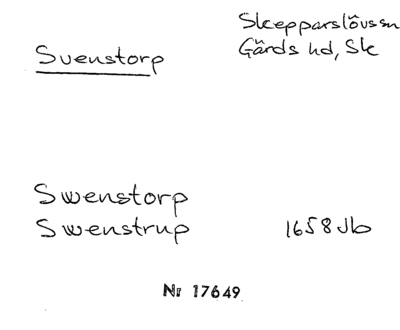 Skepparslövs sn
Gärds hd, Sk
Svenstorp
Swenstorp
Swenstrup 1658 Jb
Nr 17649